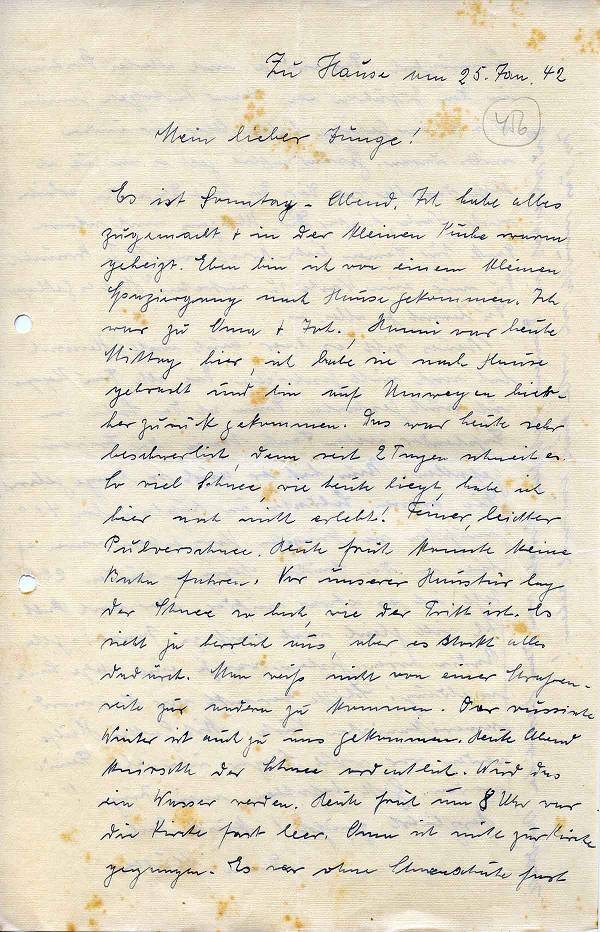 Zu Hause am 25. Jan. 42
456
Mein lieber Junge!
Es ist Sonntag-Abend. Ich habe alles
zugemacht + in der kleinen Küche warm
geheizt. Eben bin ich von einem kleinen
Spaziergang nach Hause gekommen. Ich
war zu Oma + Joh., Hanni war heute
Mittag hier, ich habe sie nach Hause
gebracht und bin auf Umwegen hier-
her zurück gekommen. Das war heute sehr
beschwerlich, denn seit 2 Tagen schneit es.
So viel Schnee, wie heute liegt, habe ich
hier noch nicht erlebt! Feiner, leichter
Pulverschnee. Heute früh konnte keine
Bahn fahren. Vor unserer Haustür lag
der Schnee so hoch, wie der Tritt ist. Es
sieht ja herrlich aus, aber es stockt alles
dadurch. Man weiß nicht von einer Straßen-
seite zur andern zu kommen. Der russische
Winter ist auch zu uns gekommen. Heute Abend
knirscht der Schnee ordentlich. Wird das
ein Wasser werden. Heute früh um 8 Uhr war
die Kirche fast leer. Oma ist nicht zur Kirche
gegangen. Es war ohne Schneeschuhe fast